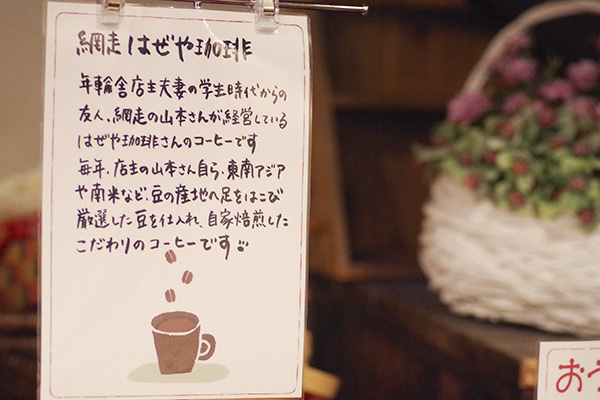 網走 はぜや珈琲
年輪舎店主夫妻の学生時代からの
友人、網走の山本さんが経営している
はぜや珈琲さんのコーヒーです
毎年、店主の山本さん自ら、東南アジア
や南米など、豆の産地へ足をはこび
厳選した豆を仕入れ、自家焙煎した
こだわりのコーヒーです
おう